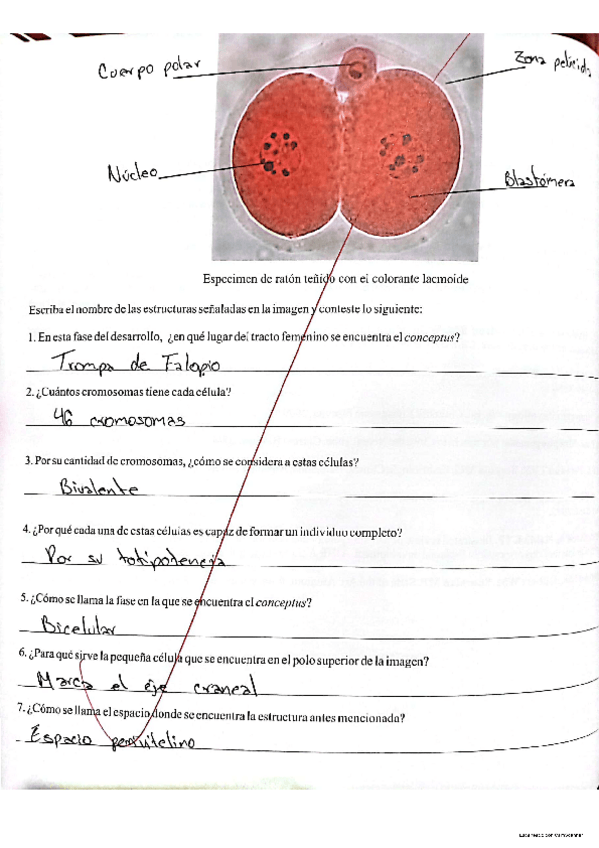 Cuerpo polar
Zona pelúcida
Núcleo
Blastómera
Especimen de ratón teñido con el colorante lacmoide
Escriba el nombre de las estructuras señaladas en la imagen y conteste lo siguiente:
1. En esta fase del desarrollo, ¿en qué lugar del tracto femenino se encuentra el conceptus?
Trompa de Falopio
2. ¿Cuántos cromosomas tiene cada célula?
46 cromosomas
3. Por su cantidad de cromosomas, ¿cómo se considera a estas células?
Bivalente
4. ¿Por qué cada una de estas células es capaz de formar un individuo completo?
Por su totipotencia
5. ¿Cómo se llama la fase en la que se encuentra el conceptus?
Bicelular
6. ¿Para qué sirve la pequeña célula que se encuentra en el polo superior de la imagen?
Marca el eje craneal
7. ¿Cómo se llama el espacio donde se encuentra la estructura antes mencionada?
Espacio perivitelino